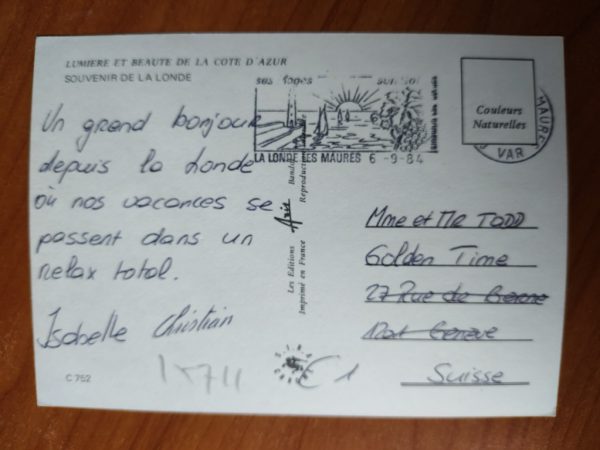 LUMIERE ET BEAUTE DE LA COTE D'AZUR
SOUVENIR DE LA LONDE
Un grand bonjour
depuis la Londe
où nos vacances se
passent dans un
relax total.
Isabelle Christian
C 752
15711
€ 1
LA LONDE LES MAURES 6-9-84
Couleurs
Naturelles
VAR
Les Editions
Imprimé en France
Mme et Mr TODD
Golden Time
27 Rue de Berne
Genève
Suisse